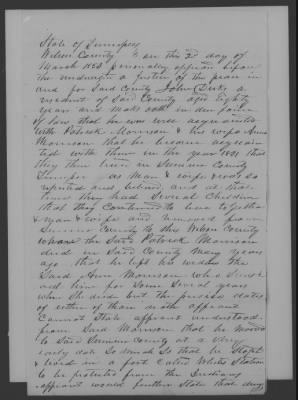 State of Tennessee
Wilson County } on this 2nd day of
March 1853 personally appeared before
the undersigned a Justice of the peace in
and for Said County John Dirks a
resident of Said County aged Eighty
years and made oath in due form
of law that he was well acquainted
with Patrick Morrison & his wife Anna
Morrison that he became acquain
ted with them in the year 1791 that
they then lived in Sumner County
as Man & wife & was so
reputed and believed, and at that
time they had Several Children
that they Continued to live together
as man & wife and removed from
Sumner County to this Wilson County
where the Said Patrick Morrison
died in Said County many years
ago that he left a widow the
Said Ann Morrison who Surviv
ed him for Some Several years
when She died but the precise dates
of either of their deaths affiant
Cannot State affiant understood
from Said Morrison that he moved
to Said Sumner County at a very
early date So much So that he Stopt
& lived in a fort Called
to be protected from the Indians
affiant would further State that